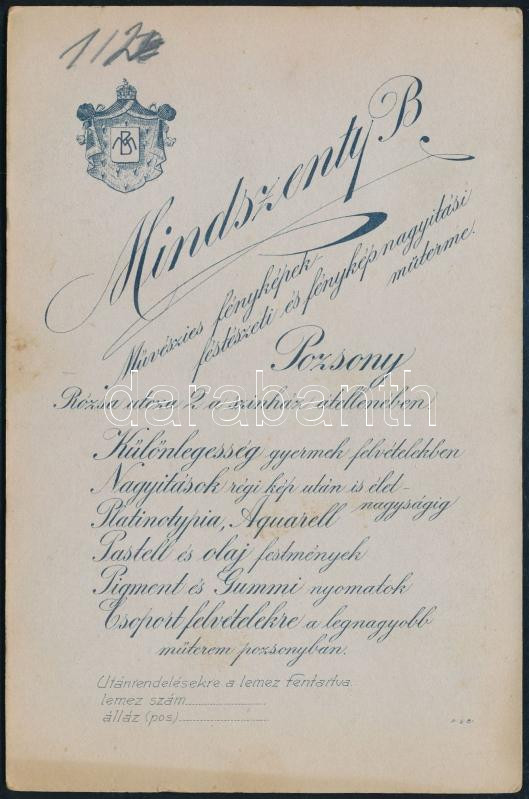 112
MB
Mindszenty B
Művészies fényképek
festészeti és fényképnagyitási
műterme.
Pozsony
Rózsa utcza 2 a szinház átellenében
darabanth
Különlegesség gyermek felvételekben
Nagyitások régi kép után is élet-
nagyságig
Platinotypia, Aquarell
Pastell és olaj festmények
Pigment és Gummi nyomatok
Csoport felvételekre a legnagyobb
műterem pozsonyban.
Utánrendelésekre a lemez fentartva.
lemez szám
álláz (pos)